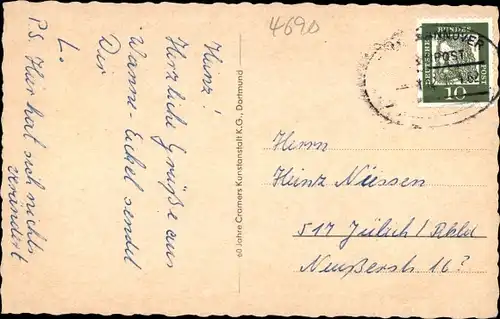 4690
Heinz!
Herzliche Grüße aus
Wanne-Eickel sendet
Dir
L.
PS. Hier hat sich nichts
verändert
60 Jahre Cramers Kunstanstalt K.G., Dortmund
DEUTSCHE BUNDES POST
10
Herrn
Heinz Nüssen
517 Jülich / Rhld
Neußerstr. 16?